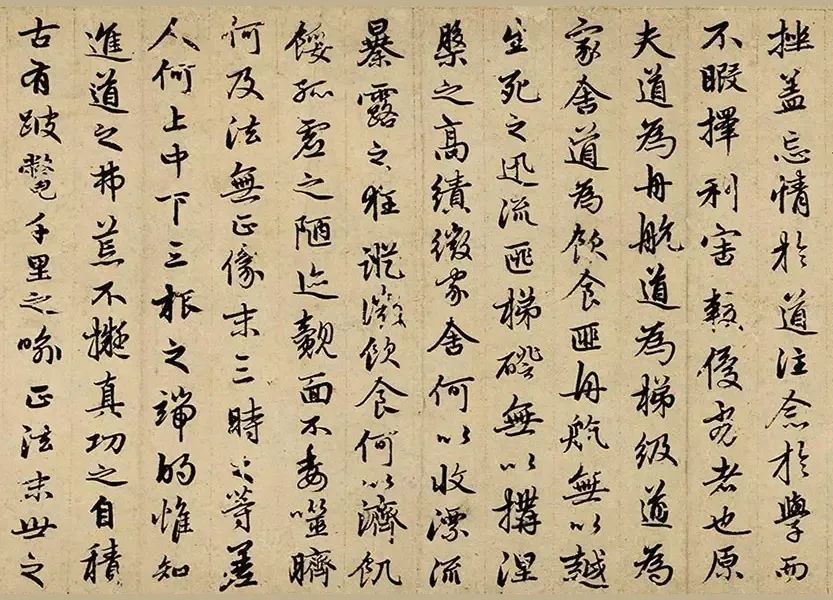 挫盖忘情於道注念於學而
不暇擇利害較優劣者也原
夫道為舟航道為梯級道為
家舍道為飲食匪舟航無以越
生死之迅流匪梯磴無以搆涅
槃之高績微家舍何以收漂流
暴露之狂蹤微飲食何以濟飢
餒孤虛之陋迹覿面不委噬臍
何及法無正像末三時之等差
人何上中下三根之端的惟知
進道之弗荒不擬真功之自積
古有跛鱉千里之喻正法末世之